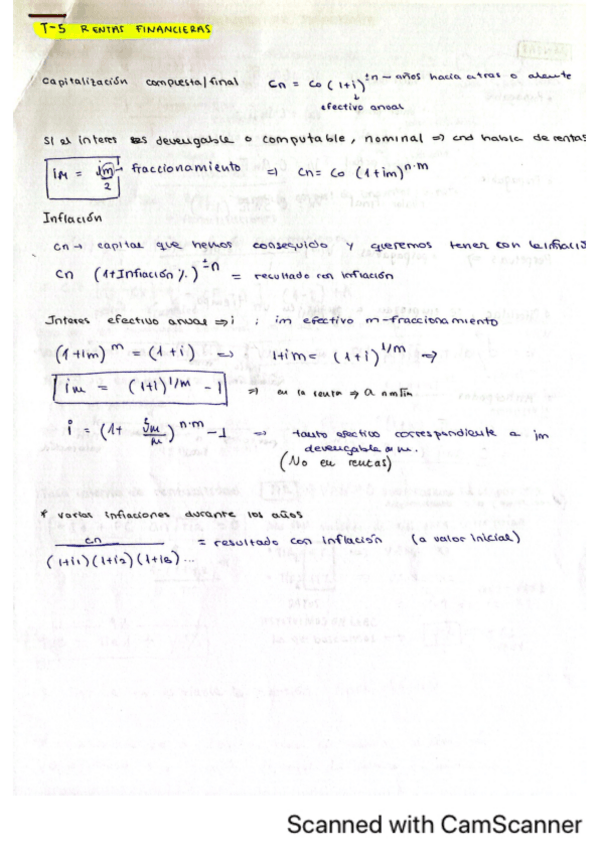 T-5 RENTAS FINANCIERAS
Capitalización compuesta/final Cn = Co (1+i)^±n – años hacia atras o alante
↓
efectivo anual
Si el interes es devengable o computable, nominal ⇒ cnd habla de rentas
im = Jm/2 → fraccionamiento ⇒ Cn = Co (1+im)^n·m
Inflación
Cn → capital que hemos conseguido y queremos tener con la inflació
Cn (1+Inflación %)^±n = resultado con inflación
Interes efectivo anual ⇒ i ; im efectivo m-fraccionamiento
(1+im)^m = (1+i) ⇒ 1+im = (1+i)^1/m ⇒
im = (1+i)^1/m - 1 ⇒ en la renta ⇒ a
i = (1+ Jm/m)^n·m - 1 ⇒ tanto efectivo correspondiente a jm
devengable a m.
(No en rentas)
* varias inflaciones durante los años
Cn / (1+i1)(1+i2)(1+i3)... = resultado con inflación (a valor inicial)
Scanned with CamScanner